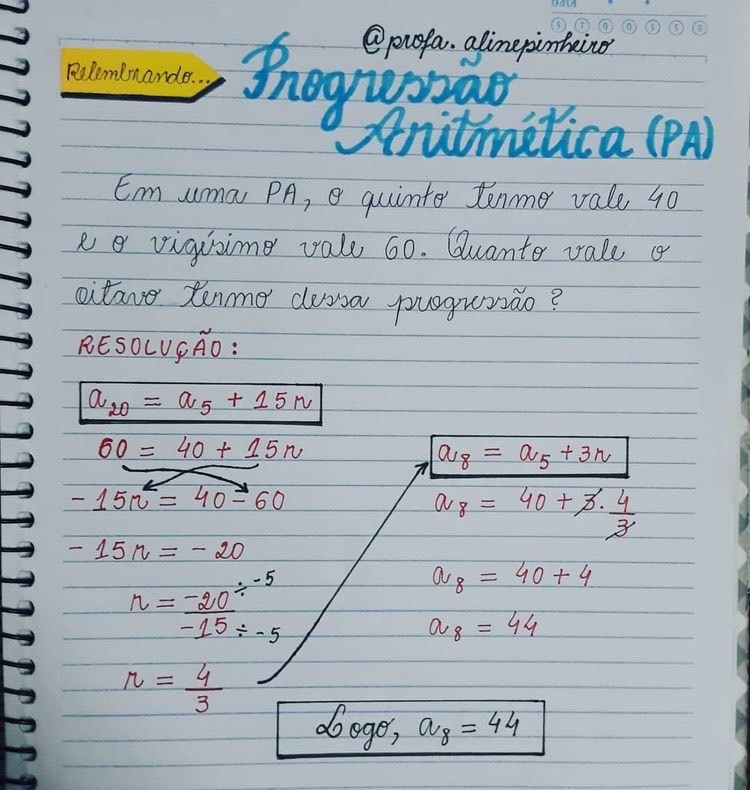 Data
@profa.alinepinheiro
Relembrando...
Progressão
Aritmética (PA)
Em uma PA, o quinto termo vale 40
e o vigésimo vale 60. Quanto vale o
oitavo termo dessa progressão?
RESOLUÇÃO:
a₂₀ = a₅ + 15r
60 = 40 + 15r
-15r = 40 - 60
-15r = -20
r = -20 ÷ -5
-15 ÷ -5
r = 4
3
a₈ = a₅ + 3r
a₈ = 40 + 3 . 4
3
a₈ = 40 + 4
a₈ = 44
Logo, a₈ = 44